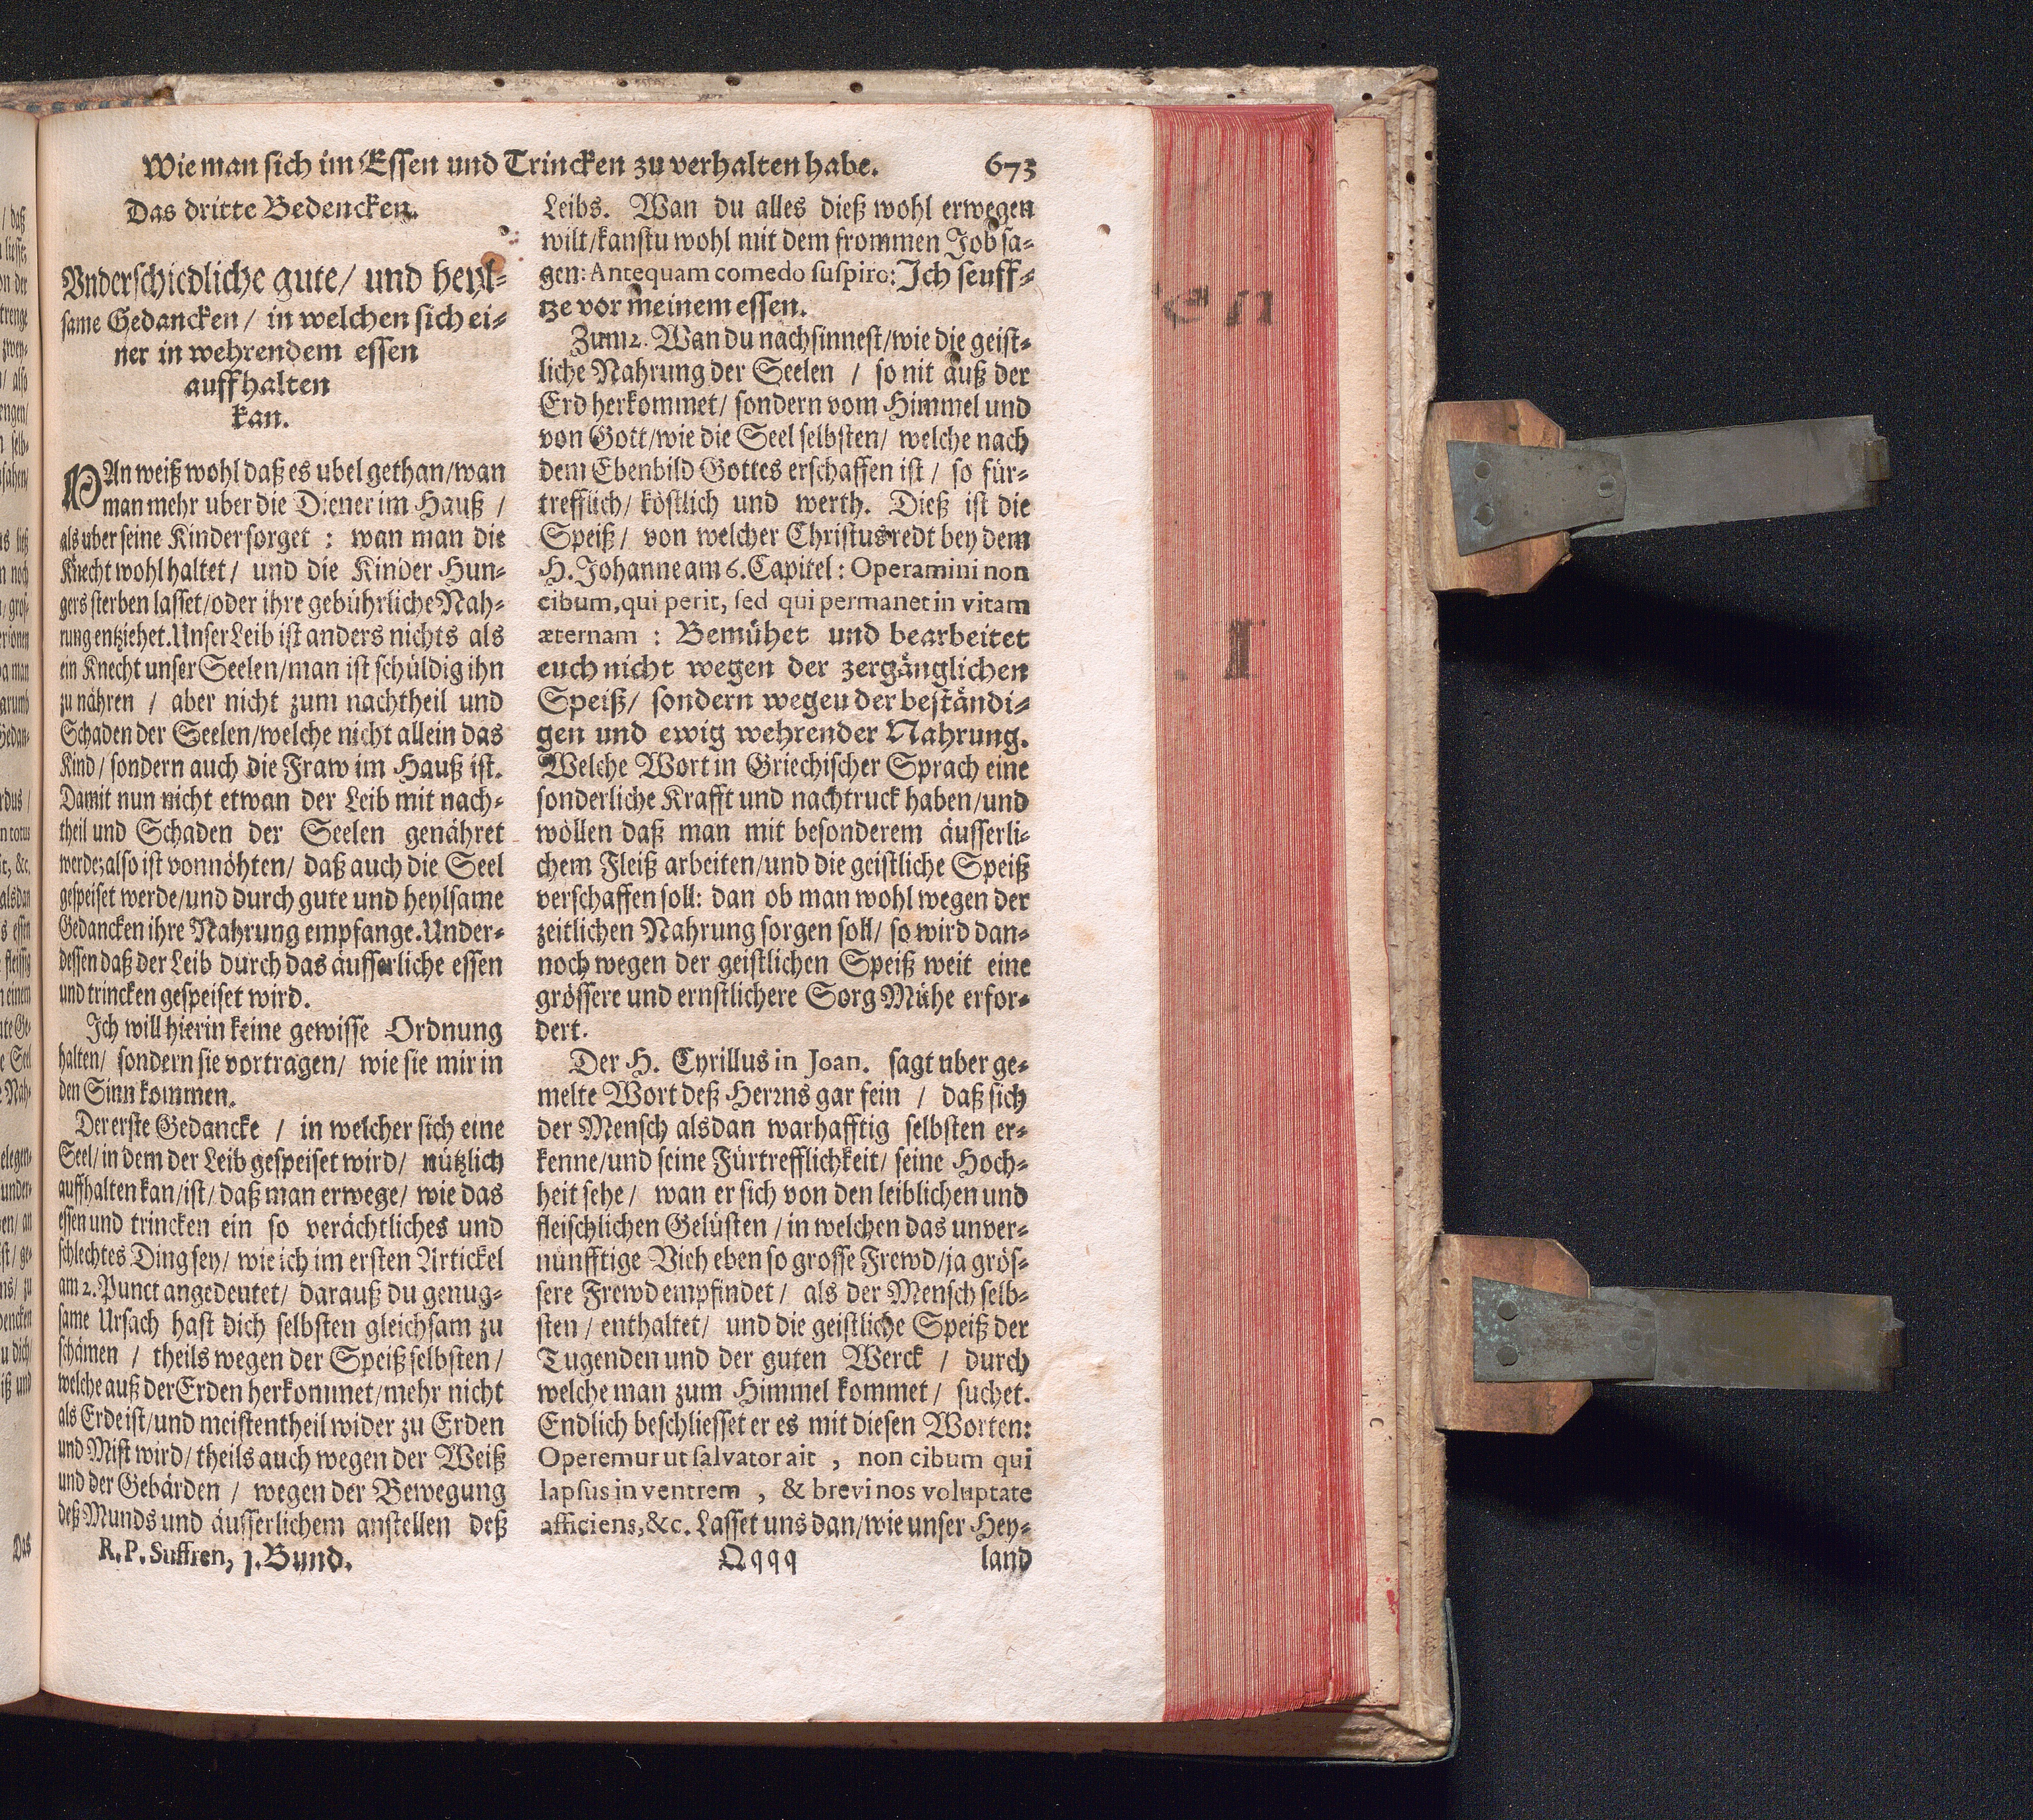 Wie man sich im Essen und Trincken zu verhalten habe. 673
Das dritte Bedencken.
Vnderschiedliche gute/ und heyl-
same Gedancken/ in welchen sich ei-
ner in wehrendem essen
auffhalten
kan.
MAn weiß wohl daß es ubel gethan/wan
man mehr uber die Diener im Hauß /
als uber seine Kinder sorget : wan man die
Knecht wohl haltet/ und die Kinder Hun-
gers sterben lasset/oder ihre gebührliche Nah-
rung entziehet. Unser Leib ist anders nichts als
ein Knecht unser Seelen/man ist schüldig ihn
zu nähren / aber nicht zum nachtheil und
Schaden der Seelen/welche nicht allein das
Kind/ sondern auch die Fraw im Hauß ist.
Damit nun nicht etwan der Leib mit nach-
theil und Schaden der Seelen genähret
werde; also ist vonnöhten/ daß auch die Seel
gespeiset werde/und durch gute und heylsame
Gedancken ihre Nahrung empfange. Under-
dessen daß der Leib durch das äusserliche essen
und trincken gespeiset wird.
Ich will hierin keine gewisse Ordnung
halten/ sondern sie vortragen/ wie sie mir in
den Sinn kommen.
Der erste Gedancke / in welcher sich eine
Seel/ in dem der Leib gespeiset wird/ nützlich
auffhalten kan/ist/ daß man erwege/ wie das
essen und trincken ein so verächtliches und
schlechtes Ding sey/ wie ich im ersten Artickel
am 2. Punct angedeutet/ darauß du genug-
same Ursach hast dich selbsten gleichsam zu
schämen / theils wegen der Speiß selbsten/
welche auß der Erden herkommet/mehr nicht
als Erde ist/und meistentheil wider zu Erden
und Mist wird/ theils auch wegen der Weiß
und der Gebärden / wegen der Bewegung
deß Munds und äusserlichem anstellen deß
R. P. Suffren, 1. Bund.
Leibs. Wan du alles dieß wohl erwegen
wilt/kanstu wohl mit dem frommen Job sa-
gen: Antequam comedo suspiro: Ich seuff-
tze vor meinem essen.
Zum 2. Wan du nachsinnest/wie die geist-
liche Nahrung der Seelen / so nit auß der
Erd herkommet/ sondern vom Himmel und
von Gott/wie die Seel selbsten/ welche nach
dem Ebenbild Gottes erschaffen ist/ so für-
trefflich/ köstlich und werth. Dieß ist die
Speiß/ von welcher Christus redt bey dem
H. Johanne am 6. Capitel: Operamini non
cibum, qui perit, sed qui permanet in vitam
æternam : Bemühet und bearbeitet
euch nicht wegen der zergänglichen
Speiß/ sondern wegeu der beständi-
gen und ewig wehrender Nahrung.
Welche Wort in Griechischer Sprach eine
sonderliche Krafft und nachtruck haben/und
wöllen daß man mit besonderem äusserli-
chem Fleiß arbeiten/und die geistliche Speiß
verschaffen soll: dan ob man wohl wegen der
zeitlichen Nahrung sorgen soll/ so wird dan-
noch wegen der geistlichen Speiß weit eine
grössere und ernstlichere Sorg Mühe erfor-
dert.
Der H. Cyrillus in Joan. sagt uber ge-
melte Wort deß Herrns gar fein / daß sich
der Mensch alsdan warhafftig selbsten er-
kenne/und seine Fürtrefflichkeit/ seine Hoch-
heit sehe/ wan er sich von den leiblichen und
fleischlichen Gelüsten / in welchen das unver-
nünfftige Vieh eben so grosse Frewd/ja grös-
sere Frewd empfindet/ als der Mensch selb-
sten / enthaltet/ und die geistliche Speiß der
Tugenden und der guten Werck / durch
welche man zum Himmel kommet/ suchet.
Endlich beschliesset er es mit diesen Worten:
Operemur ut salvator ait , non cibum qui
lapsus in ventrem , & brevi nos voluptate
afficiens, &c. Lasset uns dan/wie unser Hey-
Qqqq land